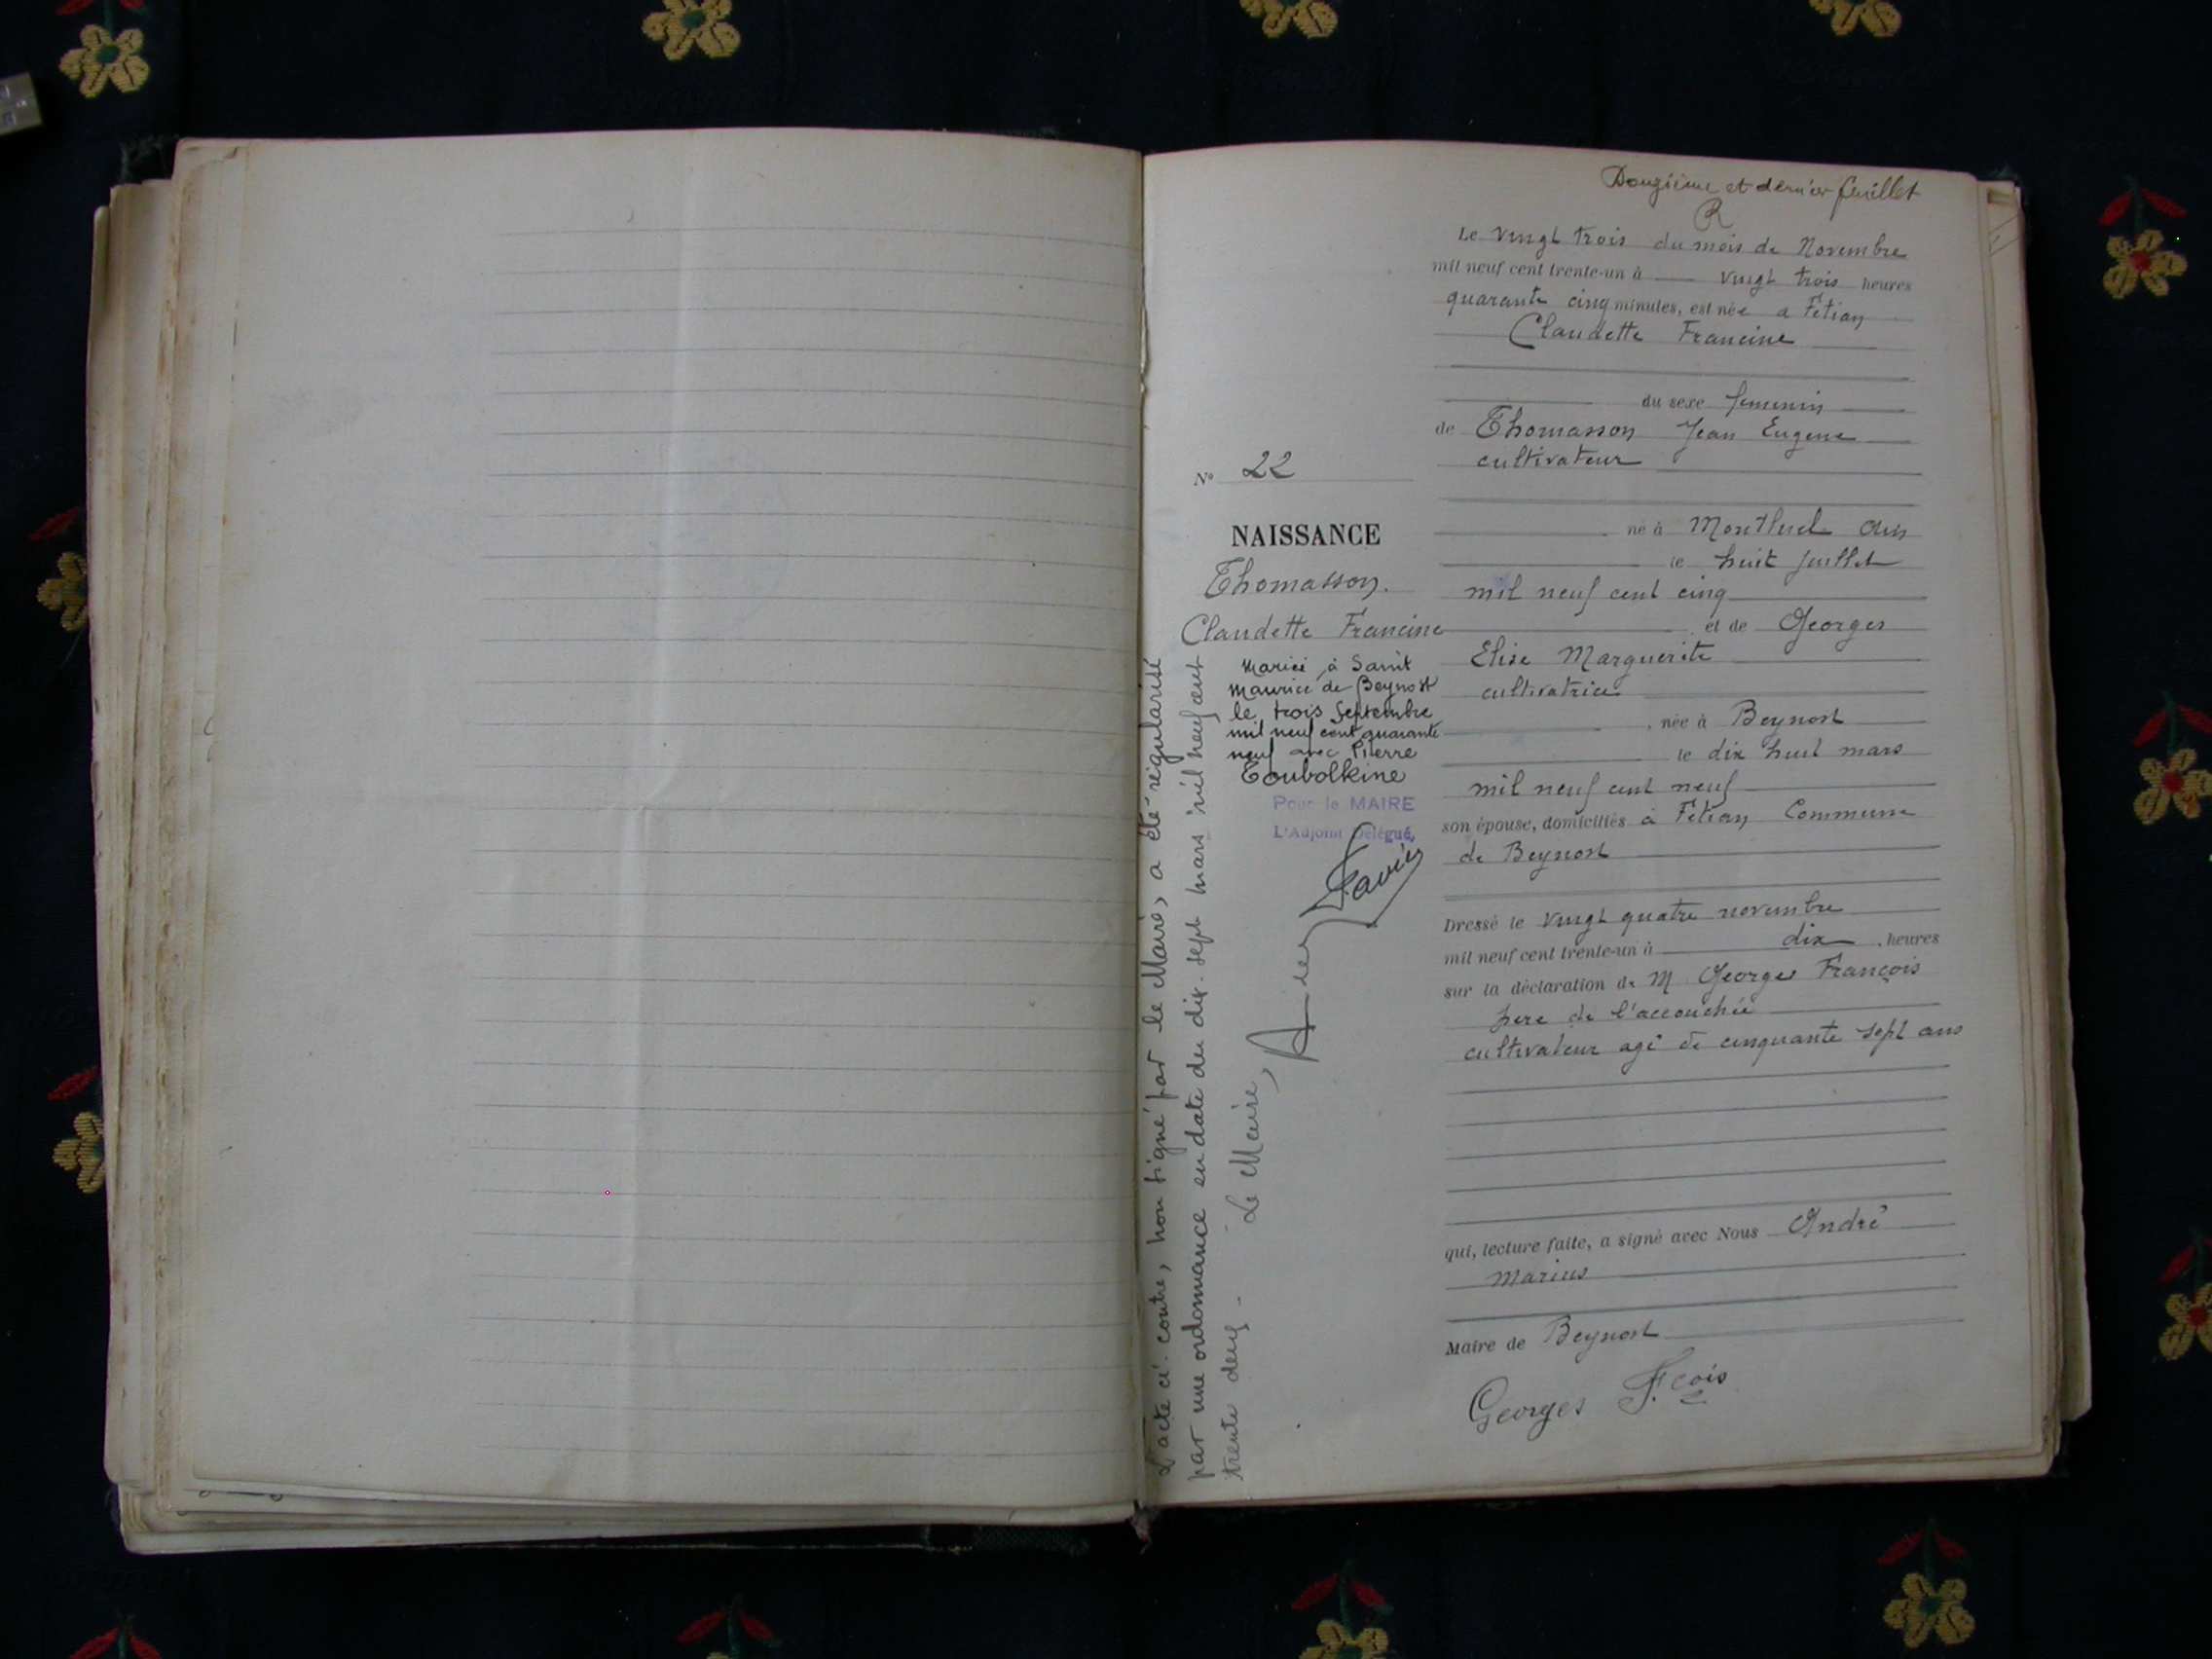 Douzième et dernier feuillet
Le vingt trois du mois de Novembre
mil neuf cent trente-un à vingt trois heures
quarante cinq minutes, est née a Fétian
Claudette Francine
du sexe femenin
de Thomasson Jean Eugene
cultivateur
né à Montluel Ain
le huit juillet
mil neuf cent cinq
et de Georges
Elise Marguerite
cultivatrice
, née à Beynost
le dix huit mars
mil neuf cent neuf
son épouse, domiciliés à Fétian Commune
de Beynost
Dressé le vingt quatre novembre
mil neuf cent trente-un à dix heures
sur la déclaration de M Georges François
pere de l'accouchée
cultivateur agé de cinquante sept ans
qui, lecture faite, a signé avec Nous André
Marius
Maire de Beynost
Georges Fcois
No 22
NAISSANCE
Thomasson.
Claudette Francine
Mariée à Saint
Maurice de Beynost
le trois Septembre
mil neuf cent quarante
neuf avec Pierre
Toubolkine
Pour le MAIRE
L'Adjoint Délégué,
L'acte ci-contre, non signé par le Maire, a été régularisé
par une ordonnance en date du dix-sept mars mil neuf cent
trente deux -
Le Maire,